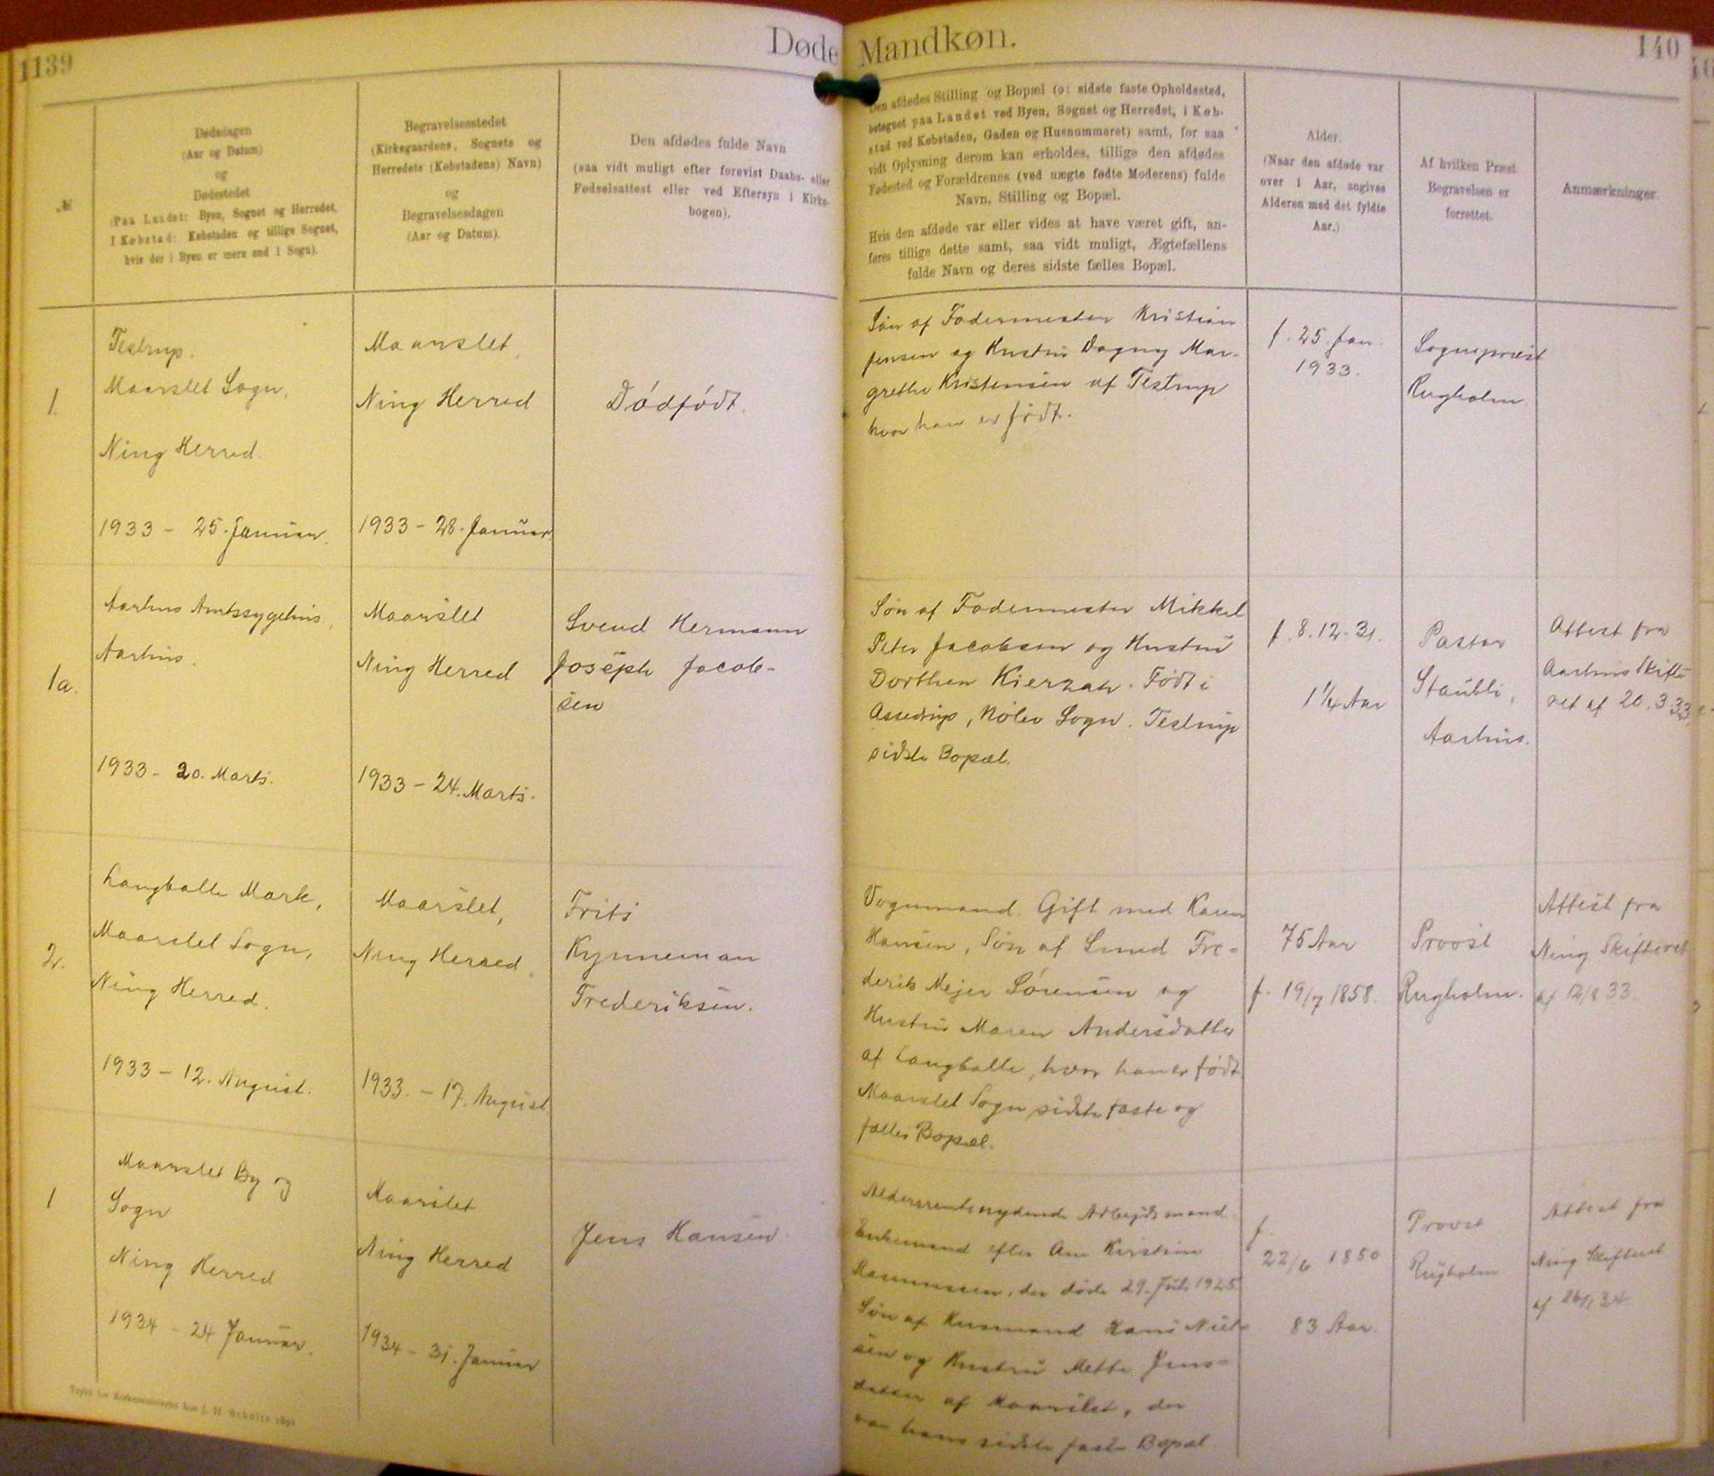 1139
Døde
Mandkøn.
140
№
Dødsdagen
(Aar og Datum)
og
Dødsstedet
(Paa Landet: Byen, Sognet og Herredet,
I Købstad: Købstaden og tillige Sognet,
hvis der i Byen er mere end 1 Sogn).
Begravelsesstedet
(Kirkegaardens, Sognets og
Herredets (Købstadens) Navn)
og
Begravelsesdagen
(Aar og Datum).
Den afdødes fulde Navn
(saa vidt muligt efter forevist Daabs- eller
Fødselsattest eller ved Eftersyn i Kirke-
bogen).
Den afdødes Stilling og Bopæl (o: sidste faste Opholdssted,
betegnet paa Landet ved Byen, Sognet og Herredet, i Køb-
stad ved Købstaden, Gaden og Husnummeret) samt, for saa
vidt Oplysning derom kan erholdes, tillige den afdødes
Fødested og Forældrenes (ved uægte fødte Moderens) fulde
Navn, Stilling og Bopæl.
Hvis den afdøde var eller vides at have været gift, an-
føres tillige dette samt, saa vidt muligt, Ægtefællens
fulde Navn og deres sidste fælles Bopæl.
Alder.
(Naar den afdøde var
over 1 Aar, angives
Alderen med det fyldte
Aar.)
Af hvilken Præst
Begravelsen er
forrettet.
Anmærkninger.
1.
Testrup.
Maarslet Sogn,
Ning Herred.
1933 - 25. Januar.
Maarslet,
Ning Herred
1933 - 28. Januar
Dødfødt.
Søn af Fodermester Kristian
Jensen og Hustru Dagny Mar-
grethe Kristensen af Testrup
hvor han er født.
f. 25. Jan.
1933.
Sognepræst
Rugholm.
1a.
Aarhus Amtssygehus,
Aarhus.
1933 - 20. Marts.
Maarslet
Ning Herred
1933 - 24. Marts.
Svend Hermann
Joseph Jacob-
sen
Søn af Fodermester Mikkel
Peter Jacobsen og Hustru
Dorthea Kierzah. Født i
Assedrup, Nølev Sogn. Testrup
sidste Bopæl.
f. 8.12.31.
1 1/4 Aar
Pastor
Staubli,
Aarhus.
Attest fra
Aarhus Skifte
ret af 20.3.33
2.
Langballe Mark,
Maarslet Sogn,
Ning Herred.
1933 - 12. August.
Maarslet,
Ning Herred.
1933. - 17. August
Frits
Kynneman
Frederiksen.
Vognmand. Gift med Karen
Hansen, Søn af Smed Fre-
derik Mejer Sørensen og
Hustru Maren Andersdatter
af Langballe, hvor han er født.
Maarslet Sogn sidste faste og
fælles Bopæl.
75 Aar
f. 19/7 1858.
Provst
Rugholm.
Attest fra
Ning Skifteret
af 12/8 33.
1
Maarslet By og
Sogn
Ning Herred
1934 - 24 Januar.
Maarslet
Ning Herred
1934 - 31. Januar
Jens Hansen
Aldersrentenydende Arbejdsmand.
Enkemand efter Ane Kirstine
Rasmussen, der døde 29. Feb. 1925.
Søn af Husmand Hans Niel-
sen og Hustru Mette Jens-
datter af Maarslet, der
var hans sidste faste Bopæl
f.
22/6 1850
83 Aar.
Provst
Rugholm
Attest fra
Ning Skifteret
af 26/1 34.